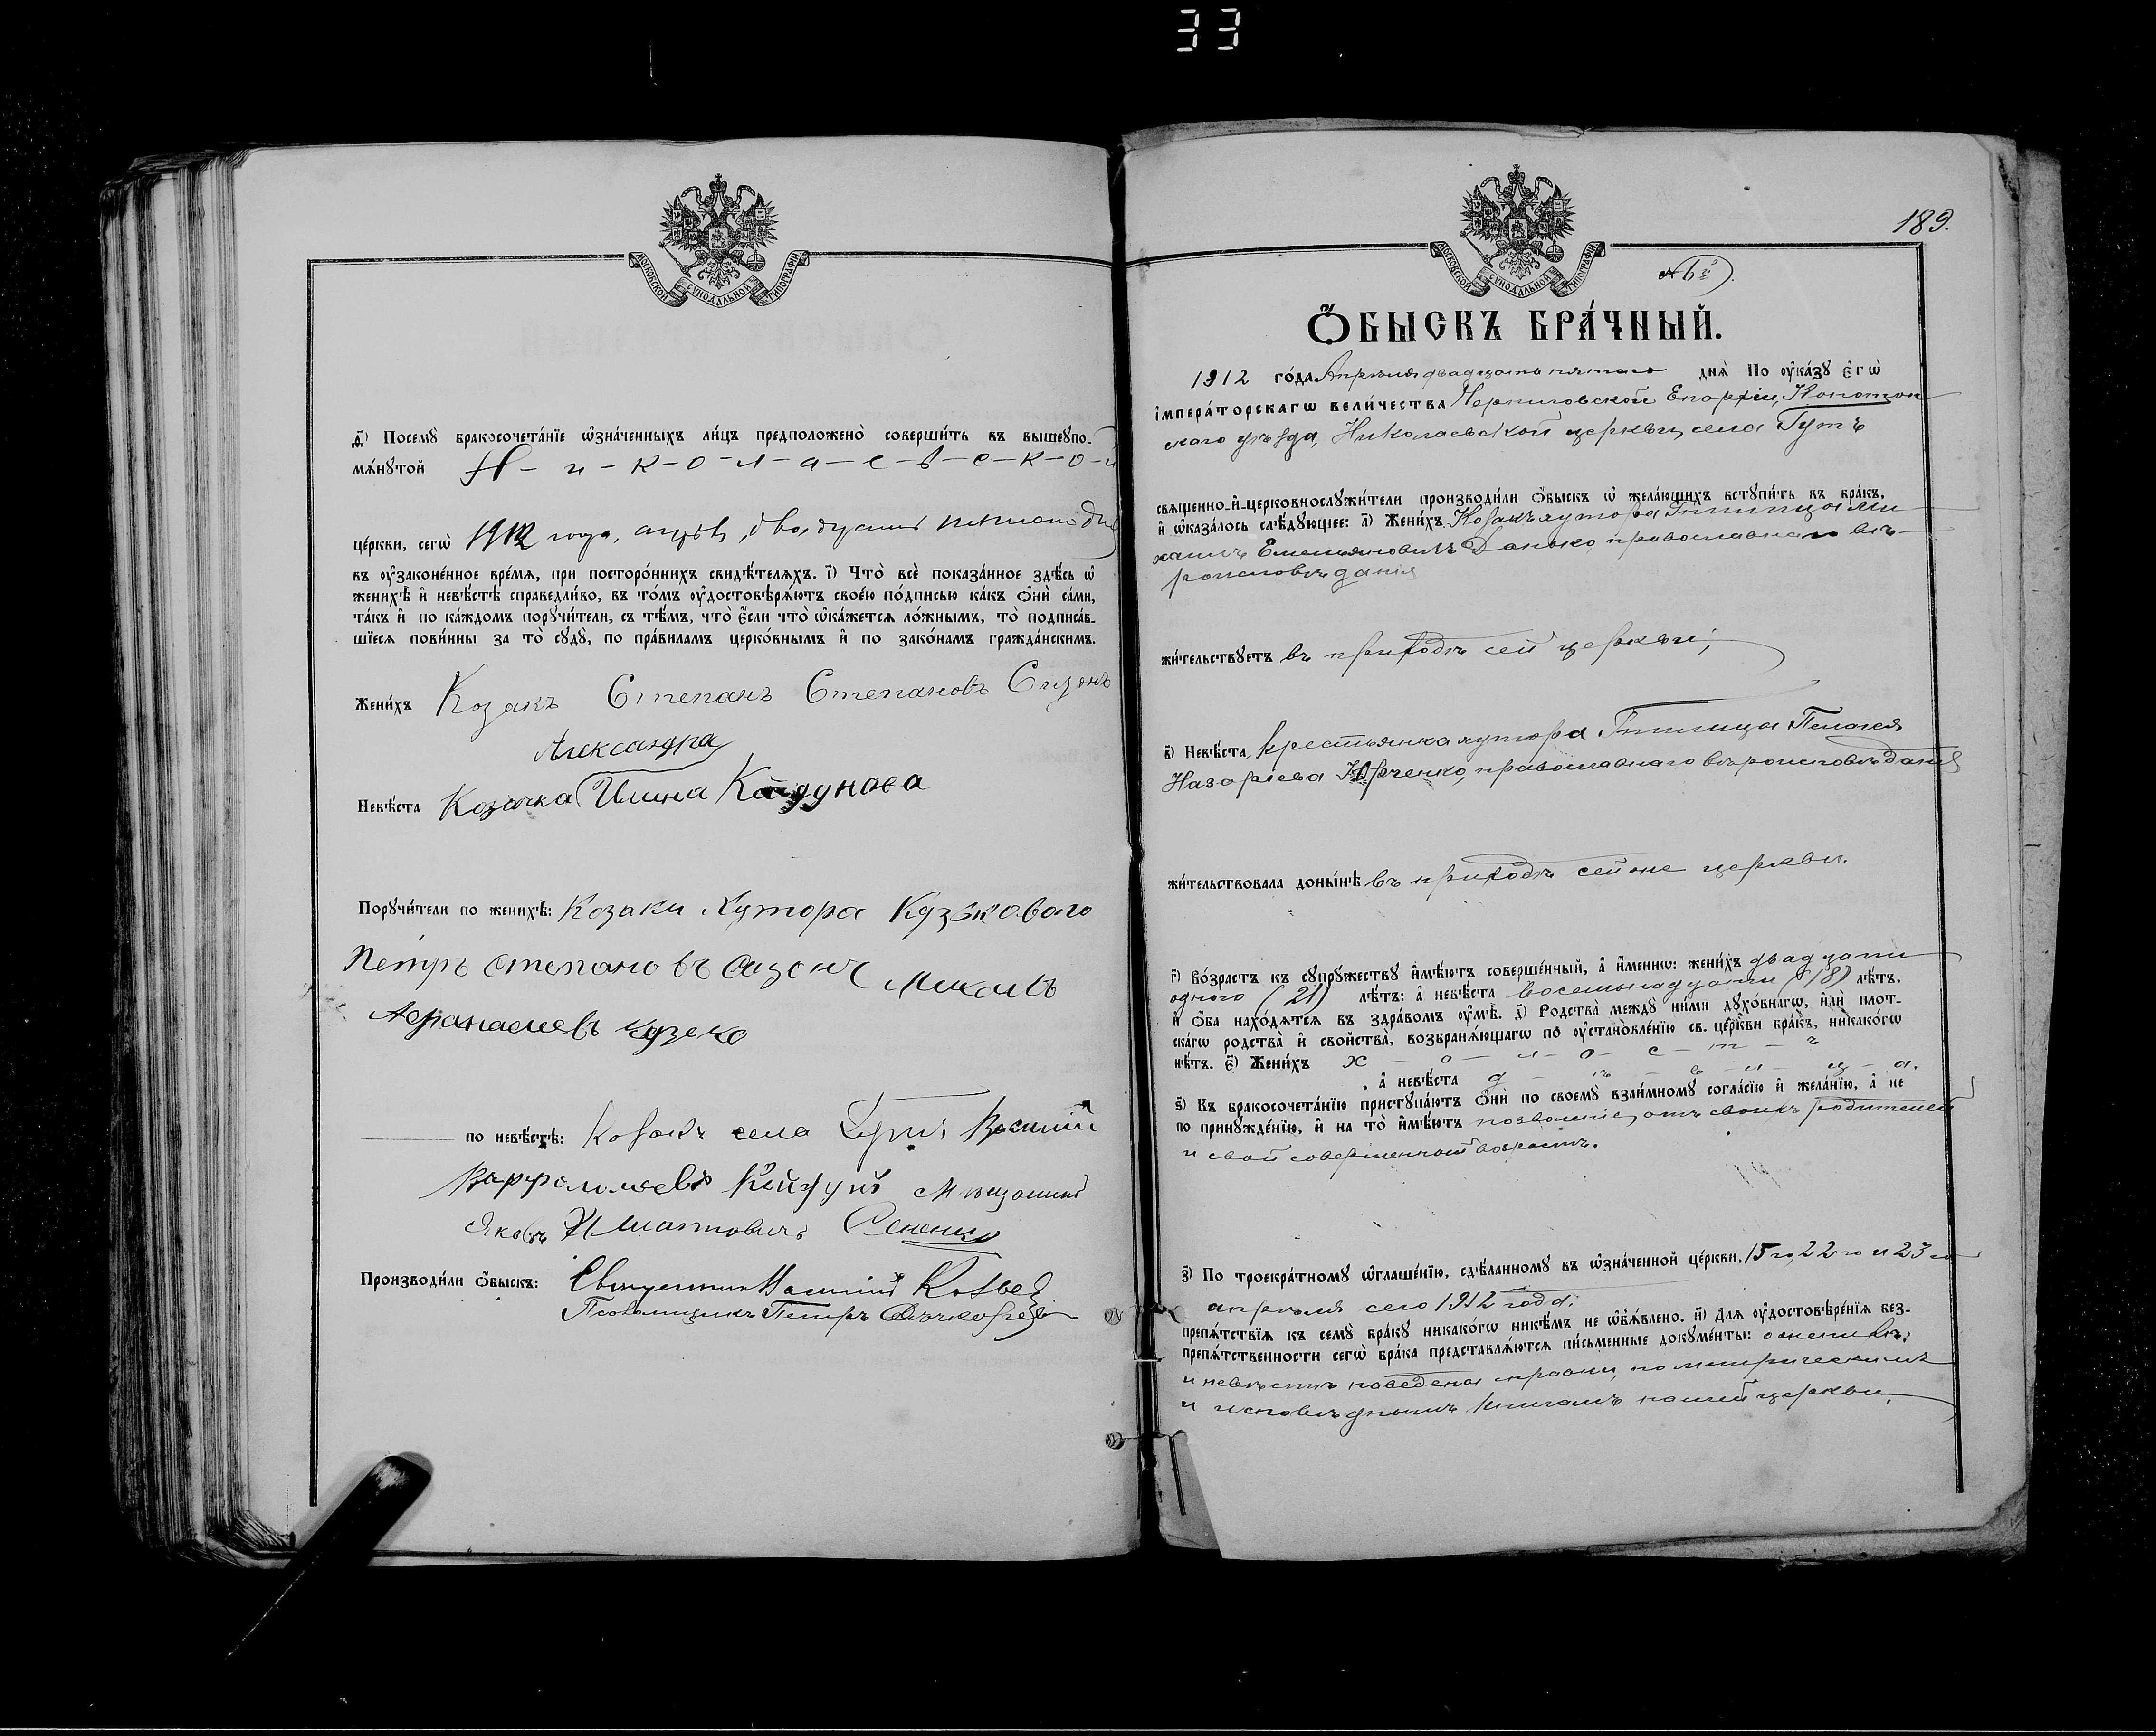 33
МОСКОВСКОЙ СѴНОДАЛЬНОЙ ТИПОГРАФІИ
д҃і) Посемꙋ̀ бракосочета́нїе ѡ҆зна́ченныхъ ли́цъ предположено̀ соверши́ть въ вышеꙋпо-
мѧ́нꙋтой Н-и-к-о-л-а-е-в-с-к-о-й
це́ркви, сегѡ̀ 1912 года, апрѣ, двадцать пятаго дня
въ ᲂу҆зако́ненное вре́мѧ, при посторо́ннихъ свидѣ́телѧхъ. і҃) Что̀ всѐ пока́занное здѣ́сь ѡ҆
женихѣ̀ и҆ невѣ́стѣ справедли́во, въ то́мъ ᲂу҆достовѣрѧ́ютъ свое́ю по́дписью ка́къ ѻ҆нѝ са́ми,
та́къ и҆ по ка́ждомъ порꙋчи́тели, съ тѣ́мъ, что̀ є҆́сли что̀ ѡ҆ка́жетсѧ ло́жнымъ, то̀ подписа́в-
шїесѧ пови́нны за то̀ сꙋдꙋ̀, по пра́виламъ церко́внымъ и҆ по зако́намъ гражда́нскимъ.
Жени́хъ Козакъ Степанъ Степановъ Сизонъ
Александра
Невѣ́ста Козачка Ильина Кайдунова
Порꙋчи́тели по женихѣ̀: Козаки Хутора Кузьковаго
Петръ Степановъ Сизонъ
Афанасиевъ Кузько
по невѣ́стѣ: Козакъ села Гутъ Василій
Варфоломѣевъ Кайдунъ мѣщанинъ
Яковъ Игнатовичъ
Производи́ли ѻ҆́быскъ: Священникъ Василій
Псаломщикъ Петръ
189.
МОСКОВСКОЙ СѴНОДАЛЬНОЙ ТИПОГРАФІИ
№ 6й
Ѻ҆́БЫСКЪ БРА́ЧНЫЙ.
1912 го́да Апрѣля двадцать пятаго днѧ̀ По ᲂу҆ка́зꙋ є҆гѡ̀
і҆мпера́торскагѡ вели́чества Черниговской Епархіи, Конотоп
скаго уѣзда, Николаевской церкви, села Гутъ
свѧще́нно-и҆-церковнослꙋжи́тели производи́ли ѻ҆́быскъ ѡ҆ жела́ющихъ встꙋпи́ть въ бра́къ,
и҆ ѡ҆каза́лось слѣ́дꙋющее: а҃) Жени́хъ Козакъ хутора Гтпица Ми
хаилъ Емельяновичъ Данько, православнаго вѣ-
роисповѣданія
жи́тельствꙋетъ въ приходѣ сей церкви;
в҃) Невѣ́ста Крестьянка хутора Пелагея
Назарьева Юрченко, православнаго вѣроисповѣданія
жи́тельствовала доны́нѣ въ приходѣ сей же церкви.
г҃) Во́зрастъ къ сꙋпрꙋ́жествꙋ и҆мѣ́ютъ соверше́нный, а҆ и҆́меннѡ: жени́хъ двадцати
одного (21) лѣ́тъ: а҆ невѣ́ста восемьнадцати (18) лѣ́тъ,
и҆ ѻ҆́ба нахо́дѧтсѧ въ здра́вомъ ᲂу҆мѣ̀. д҃) Родства̀ междꙋ̀ ни́ми дꙋхо́внагѡ, и҆лѝ пло́т-
скагѡ родства̀ и҆ свойства̀, возбранѧ́ющагѡ по̀ ᲂу҆становле́нїю св. це́ркви бра́къ, никако́гѡ
нѣ́тъ. є҃) Жени́хъ х-о-л-о-с-т-ъ
, а҆ невѣ́ста д-ѣ-в-и-ц-а.
ѕ҃) Къ бракосочета́нїю пристꙋпа́ютъ ѻ҆нѝ по своемꙋ̀ взаи́мномꙋ согла́сїю и҆ жела́нїю, а҆ не
по принꙋжде́нїю, и҆ на то̀ и҆мѣ́ютъ позволеніе, отъ своихъ родителей
и свой совершенный возрастъ.
з҃) По троекра́тномꙋ ѡ҆глаше́нїю, сдѣ́ланномꙋ въ ѡ҆зна́ченной це́ркви, 15го, 22го и 23го
апрѣля сего 1912 года.
препѧ́тствїѧ къ семꙋ̀ бра́кꙋ никако́гѡ никѣ́мъ не ѡ҆б̾ѧ́влено. и҃) Длѧ ᲂу҆достовѣре́нїѧ без-
препѧ́тственности сегѡ̀ бра́ка представлѧ́ютсѧ пи́сьменные докꙋме́нты: о женихѣ:
и невѣстѣ наведены справки, по метрическимъ
и исповѣднымъ книгамъ нашей церкви.